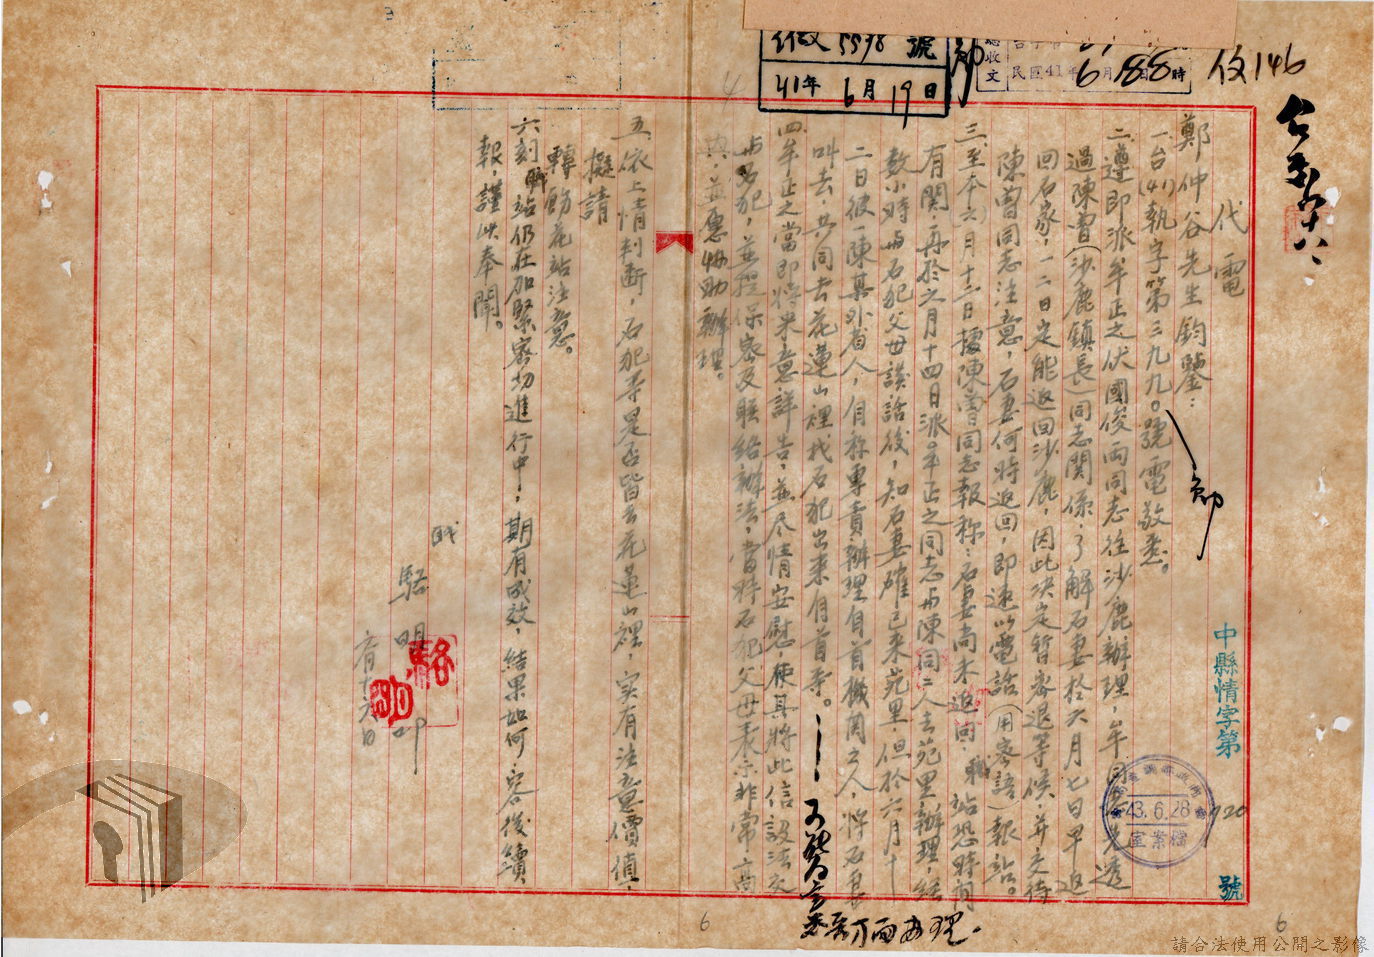 伩146
5598號
41年6月19日
總收文
民國41年6月18日8時
代電
中縣情字第920號
鄭仲谷先生鈞鑒：
一、台(41)執字第三九九0號電敬悉。
二、遵即派牟正之伏國俊兩同志往沙鹿辦理，牟同志先透
過陳曾(沙鹿鎮長)同志關係，了解石妻於六月七日早返
回石家，一二日定能返回沙鹿，因此決定暫審退等候，并交待
陳曾同志注意，石妻何時返回，即速以電話(用密語)報站。
三、至本(六)月十二日據陳曾同志報称：石妻尚未返回，職站恐時間
有関，再於六月十四日派牟正之同志與陳同二人去苑里辦理，經
數小時與石犯父母談話後，知石妻確已來苑里，但於六月十
二日彼一陳某外省人，自称專責辦理自首機関之人，將石妻
叫去，共同去花蓮山裡找石犯出來自首等。
四、牟正之當即將來意詳告，並尽情安慰，使其將此信設法交
與石犯，並提保密及聯絡辦法，當時石犯父母表示非常高
興，並愿協助辦理。
五、依上情判断，石犯等是否皆去花蓮山裡，实有注意價值，
擬請
轉飭花站注意。
六、刻職站仍在加緊密切進行中，期有成效，結果如何，容後續
報，謹此奉聞。
職
駱明卯
六月十六日
駱明
43.6.28
檔案室
6
6
請合法使用公開之影像